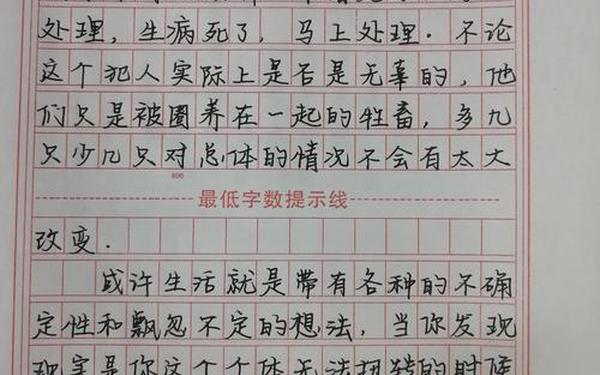 处理，生病死了，马上处理．不论
这个犯人实际上是否是无辜的，他
们只是被圈养在一起的牲畜，多几
只少几只对总体的情况不会有太大
800
最低字数提示线
改变．
或许生活就是带有各种的不确
定性和飘忽不定的想法，当你发现
现实是你这个个体无法扭转的时候